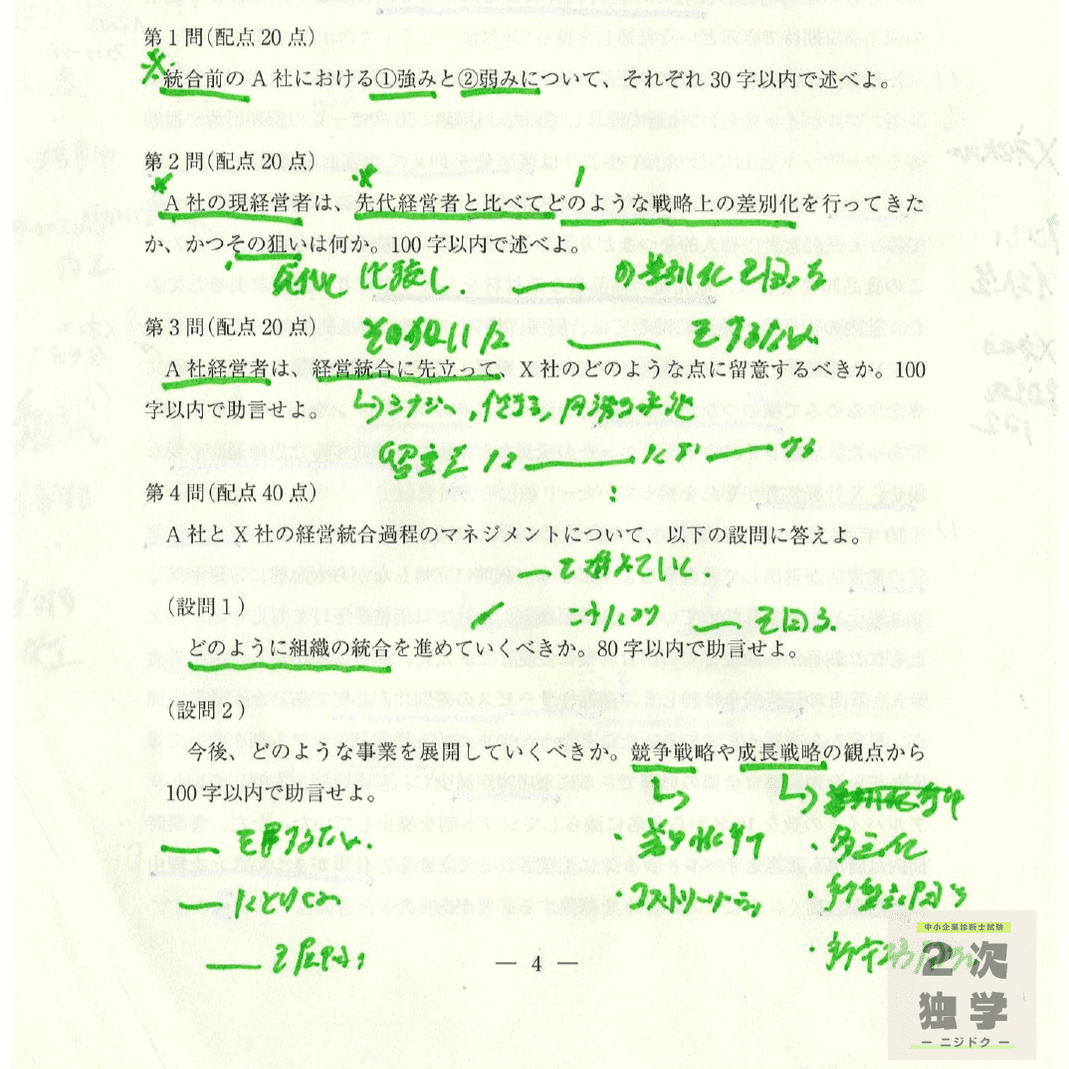 第1問(配点20点)
統合前のA社における①強みと②弱みについて、それぞれ30字以内で述べよ。
第2問(配点20点)
A社の現経営者は、先代経営者と比べてどのような戦略上の差別化を行ってきた
か、かつその狙いは何か。100字以内で述べよ。
先代と比較し、 の差別化を図った
第3問(配点20点)
その狙いは をするため
A社経営者は、経営統合に先立って、X社のどのような点に留意するべきか。100
字以内で助言せよ。
シナジー
留意点は
第4問(配点40点)
A社とX社の経営統合過程のマネジメントについて、以下の設問に答えよ。
(設問1)
これにより を図る
どのように組織の統合を進めていくべきか。80字以内で助言せよ。
(設問2)
今後、どのような事業を展開していくべきか。競争戦略や成長戦略の観点から
100字以内で助言せよ。
・差別化
・多角化
・コストリーダーシップ
― 4 ―
中小企業診断士試験
2次
独学
― ニジドク ―